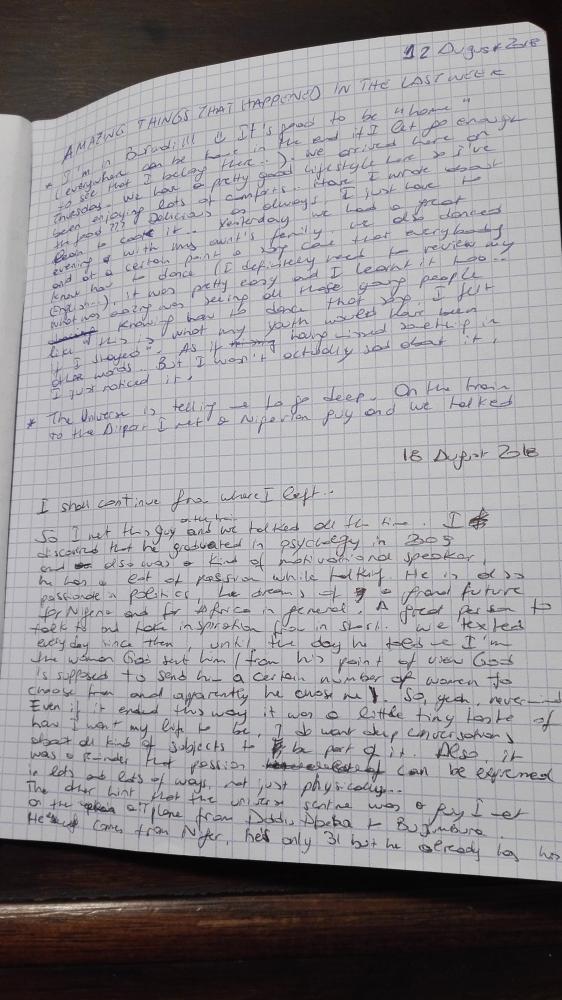 12 August 2018
AMAZING THINGS THAT HAPPENED IN THE LAST WEEK
* I'm in Burundi!!! It's good to be "home"
(everywhere can be home in the end if I let go enough
to see that I belong there...). We arrived here on
Thursday. We have a pretty good lifestyle here so I've
been enjoying lots of comforts. Have I wrote about
the food??? Delicious as always, I just have to
learn to cook it... Yesterday we had a great
evening with my aunt's family, we also danced
and at a certain point a song came that everybody
knew how to dance (I definitely need to review my
English...), it was pretty easy and I learnt it too...
What was was seeing all those young people
knowing how to dance that song, I felt
like "this is what my youth would have been
if I stayed". As if having missed something in
other words... But I wasn't actually sad about it,
I just noticed it.
* The Universe is telling me to go deep. On the train
to the Airport I met a Nigerian guy and we talked
18 August 2018
I shall continue from where I left...
So I met this guy on the train and we talked all the time. I
discovered that he graduated in psycology in 2009
and also was a kind of motivational speaker,
he has a lot of passion while talking. He is also
passionate in politics, he dreams of a grand future
for Nigeria and for Africa in general. A great person to
talk to and take inspiration from in short. We texted
everyday since then, until the day he told me I'm
the woman God sent him (from his point of view God
is supposed to send him a certain number of women to
choose from and apparently he chose me). So, yeah, nevermind
Even if it ended this way it was a little tiny taste of
how I want my life to be, I do want deep conversations
about all kind of subjects to be part of it. Also, it
was a reminder that passion can be expressed
in lots and lots of ways, not just physically...
The other hint that the universe sent me was a guy I met
on the airplane from Addis Abeba to Bujumbura.
He comes from Niger, he's only 31 but he already has his